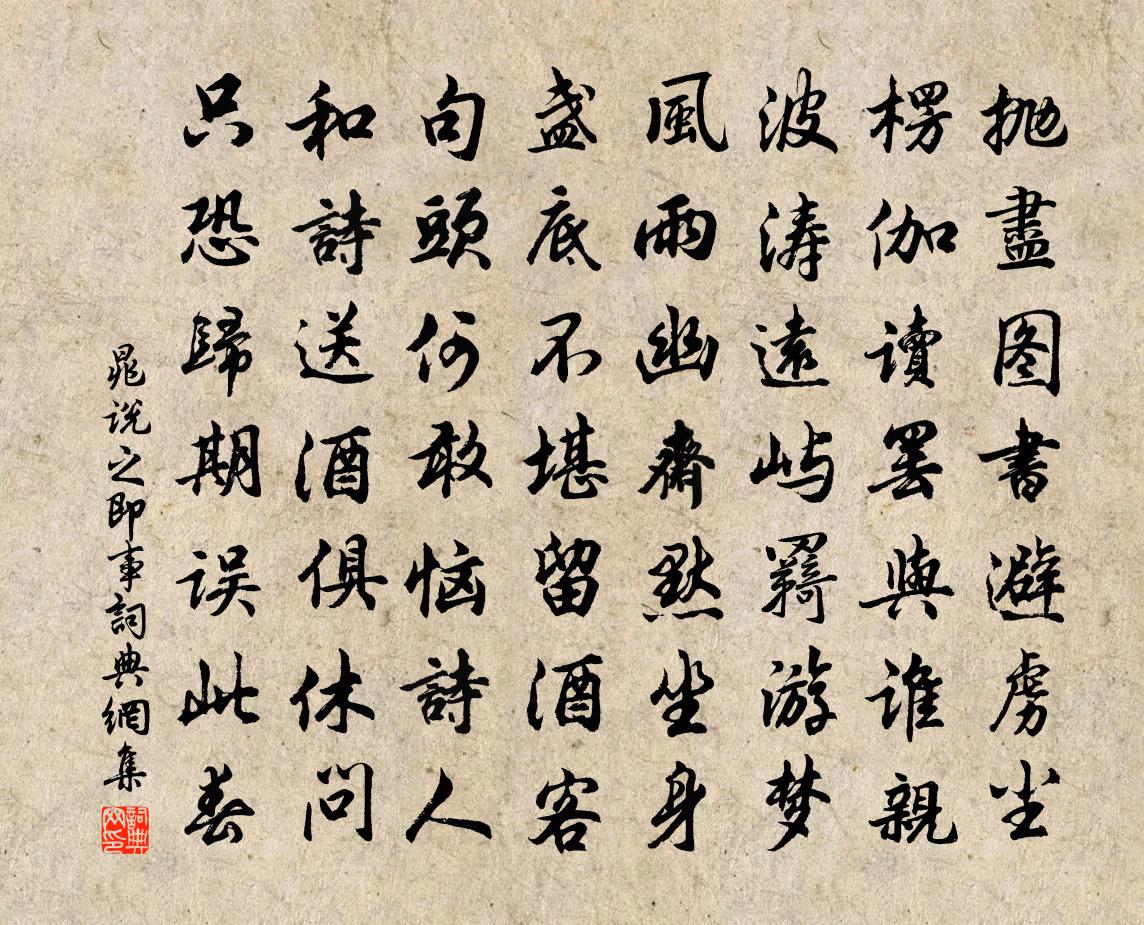 抛盡图書避虜尘
楞伽讀罢與誰親
波濤遠屿羇游梦
風雨幽齋默坐身
盏底不堪留酒客
句頭何敢恼詩人
和詩送酒俱休问
只恐歸期误此春
晁说之即事詞典網集
詞典网印